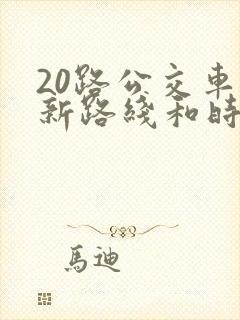 20路公交車
新路綫和時
馬迪